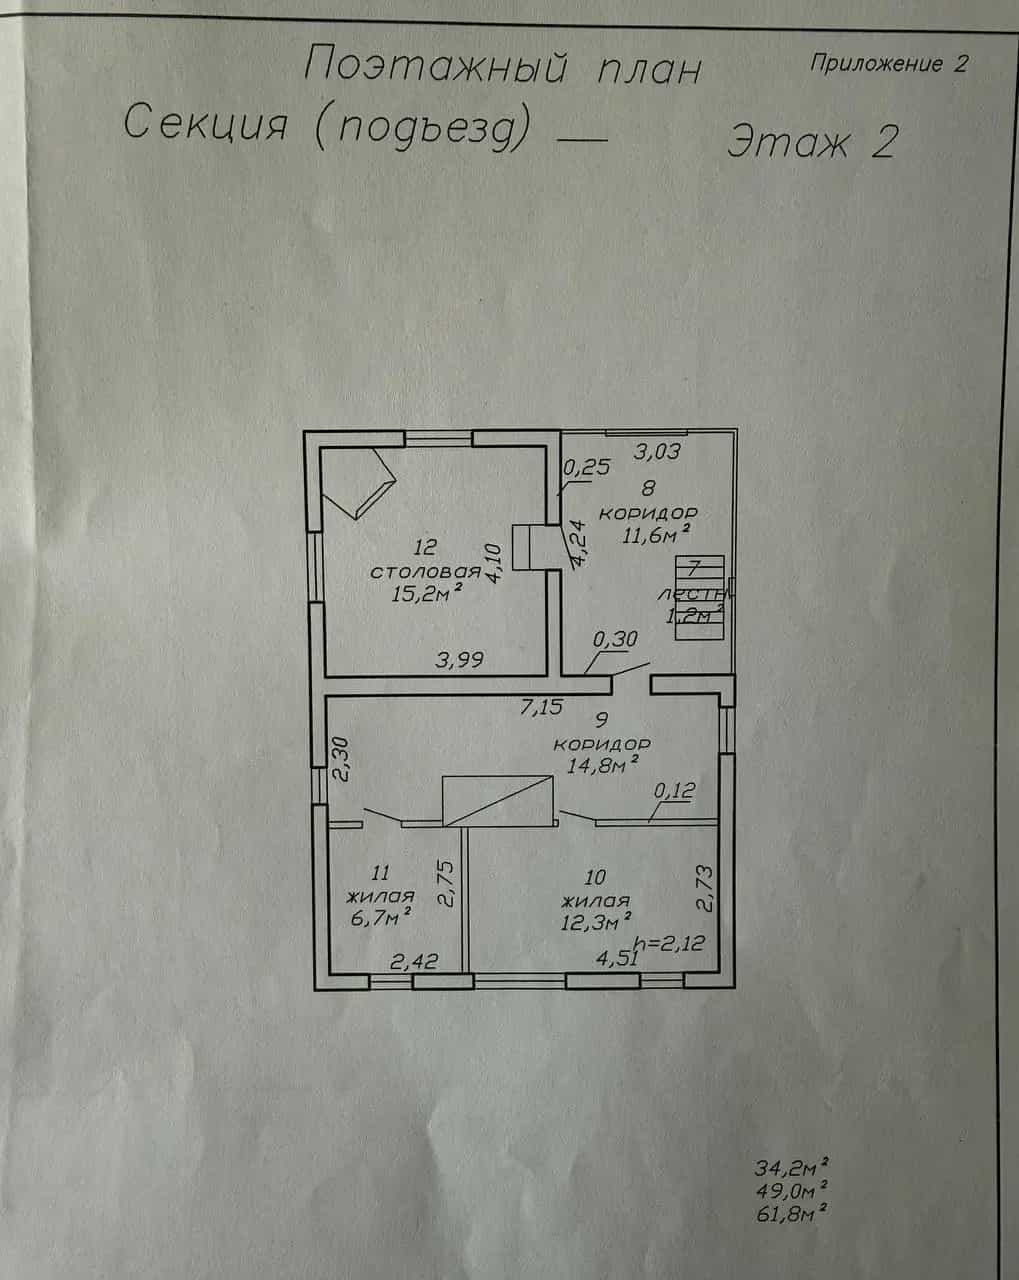 Поэтажный план
Приложение 2
Секция (подъезд) __
Этаж 2
3,03
0,25
8
коридор
11,6м²
4,24
12
столовая
15,2м²
4,10
7
лестн
1,2м²
3,99
0,30
7,15
9
коридор
14,8м²
2,30
0,12
11
жилая
6,7м²
2,75
10
жилая
12,3м²
2,73
h=2,12
2,42
4,51
34,2м²
49,0м²
61,8м²